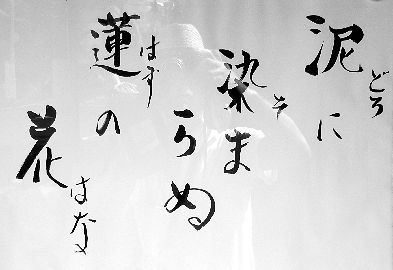 泥に
どろ
染まらぬ
そ
蓮の
はす
花
はな